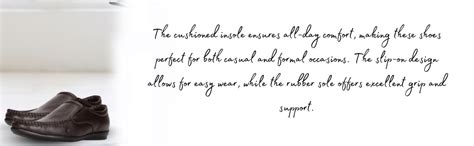 The cushioned insole ensures all-day comfort, making these shoes
perfect for both casual and formal occasions. The slip-on design
allows for easy wear, while the rubber sole offers excellent grip and
support.